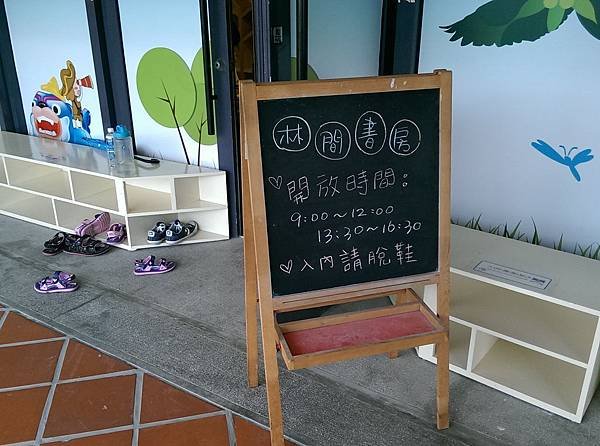 林間書房
♡開放時間：
9:00～12:00
13:30～16:30
♡入內請脫鞋